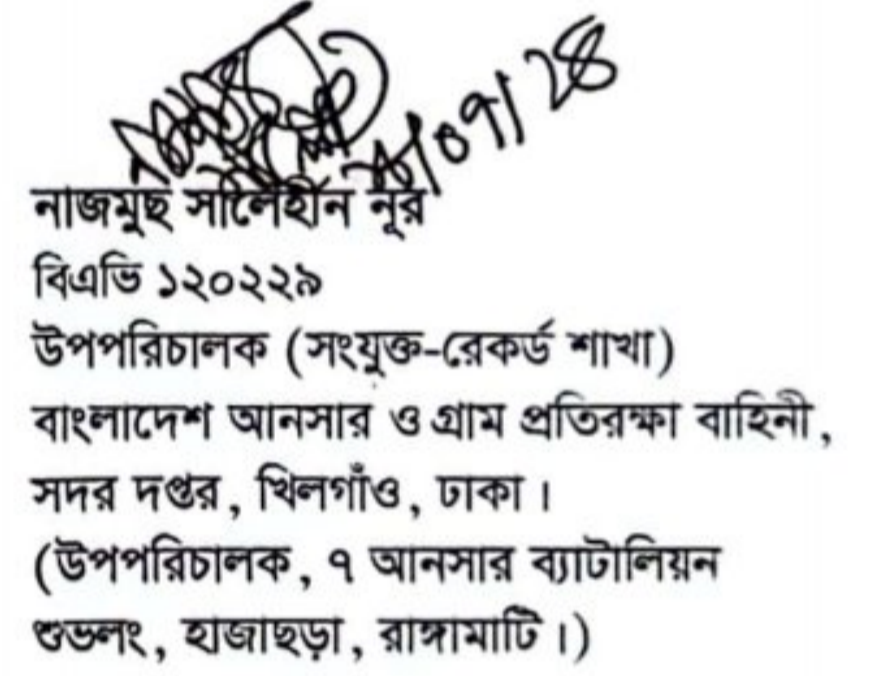 নাজমুছ সালেহীন নূর
বিএভি ১২০২২৯
উপপরিচালক (সংযুক্ত-রেকর্ড শাখা)
বাংলাদেশ আনসার ও গ্রাম প্রতিরক্ষা বাহিনী,
সদর দপ্তর, খিলগাঁও, ঢাকা।
(উপপরিচালক, ৭ আনসার ব্যাটালিয়ন
শুভলং, হাজাছড়া, রাঙ্গামাটি।)